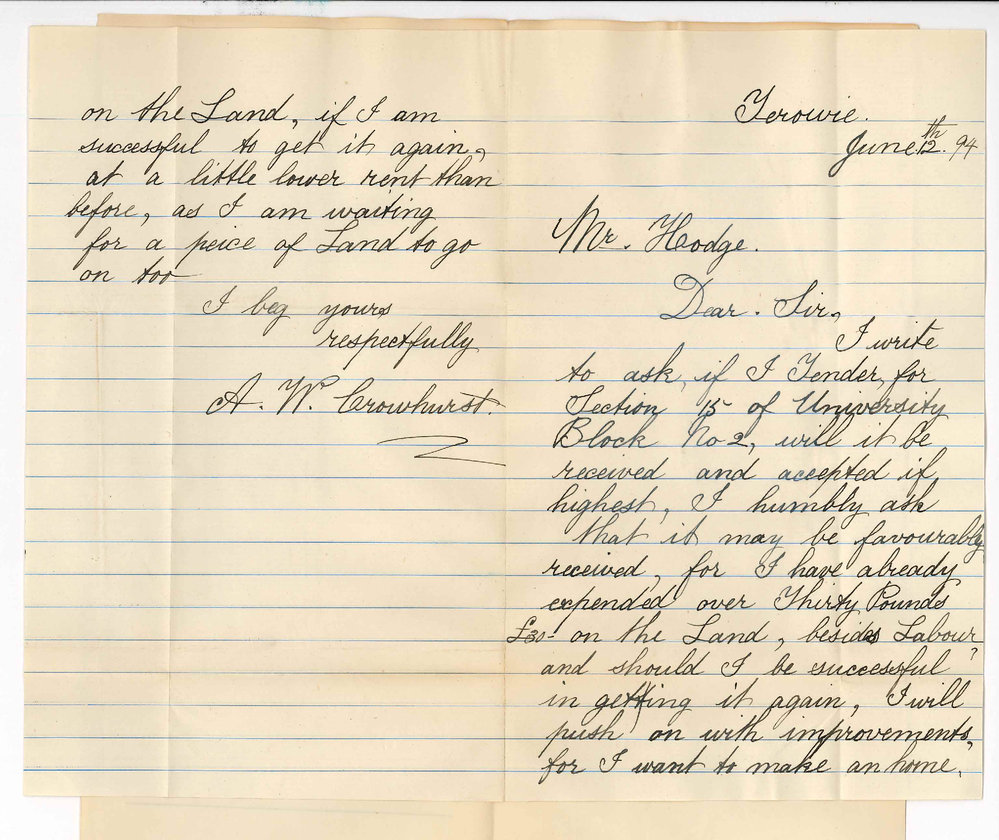 Terowie.
June 12th. 94
Mr. Hodge.
Dear. Sir,
I write
to ask, if I Tender, for
Section 15 of University
Block No 2, will it be
received and accepted if
highest, I humbly ask
that it may be favourably
received, for I have already
expended over Thirty Pounds
£30- on the Land, besides Labour,
and should I be successful
in getting it again, I will
push on with improvements,
for I want to make an home,
on the Land, if I am
successful to get it again,
at a little lower rent than
before, as I am waiting
for a peice of Land to go
on too
I beg yours
respectfully
A. W. Crowhurst.